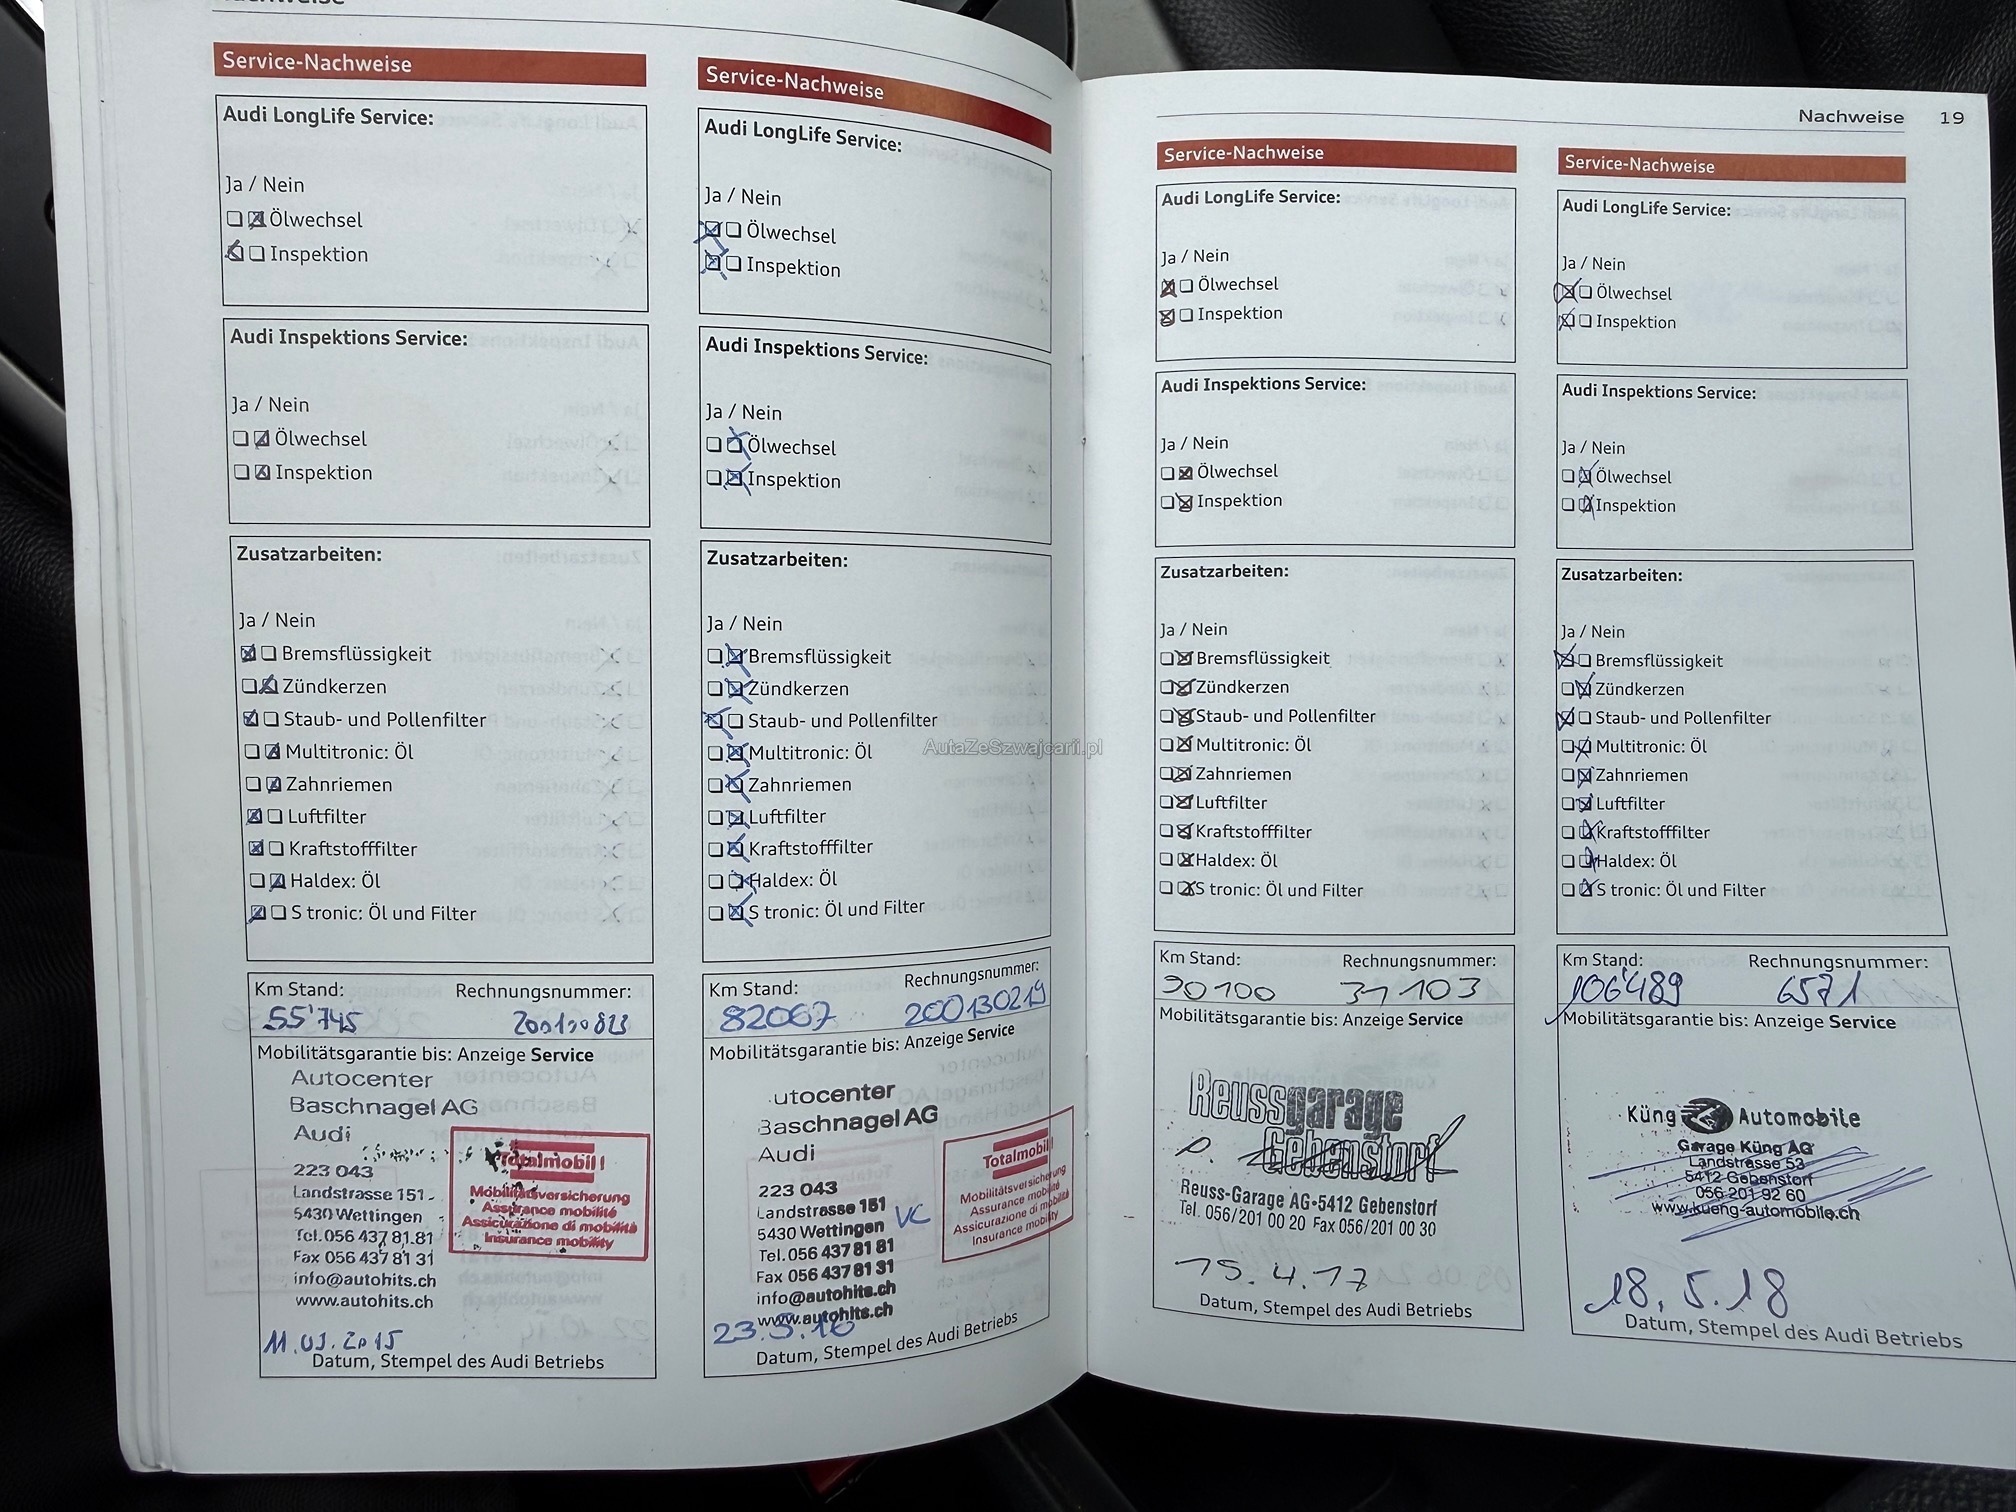 Service-Nachweise
Audi LongLife Service:
Ja / Nein
Ölwechsel
Inspektion
Audi Inspektions Service:
Ja / Nein
Ölwechsel
Inspektion
Zusatzarbeiten:
Ja / Nein
Bremsflüssigkeit
Zündkerzen
Staub- und Pollenfilter
Multitronic: Öl
Zahnriemen
Luftfilter
Kraftstofffilter
Haldex: Öl
S tronic: Öl und Filter
Km Stand: Rechnungsnummer:
55'745
Mobilitätsgarantie bis: Anzeige Service
Autocenter
Baschnagel AG
Audi
223 043
Landstrasse 151
5430 Wettingen
Tel. 056 437 81 81
Fax 056 437 81 31
info@autohits.ch
www.autohits.ch
Totalmobil!
Mobilitätsversicherung
Assurance mobilité
Assicurazione di mobilità
Insurance mobility
Datum, Stempel des Audi Betriebs
Service-Nachweise
Audi LongLife Service:
Ja / Nein
Ölwechsel
Inspektion
Audi Inspektions Service:
Ja / Nein
Ölwechsel
Inspektion
Zusatzarbeiten:
Ja / Nein
Bremsflüssigkeit
Zündkerzen
Staub- und Pollenfilter
Multitronic: Öl
Zahnriemen
Luftfilter
Kraftstofffilter
Haldex: Öl
S tronic: Öl und Filter
Km Stand: Rechnungsnummer:
82067 200130219
Mobilitätsgarantie bis: Anzeige Service
utocenter
Baschnagel AG
Audi
223 043
Landstrasse 151
5430 Wettingen
VC
Tel. 056 437 81 81
Fax 056 437 81 31
info@autohits.ch
www.autohits.ch
Totalmobil!
Mobilitätsversicherung
Assurance mobilité
Assicurazione di mobilità
Insurance mobility
23.3.16
Datum, Stempel des Audi Betriebs
AutaZeSzwajcarii.pl
Nachweise 19
Service-Nachweise
Audi LongLife Service:
Ja / Nein
Ölwechsel
Inspektion
Audi Inspektions Service:
Ja / Nein
Ölwechsel
Inspektion
Zusatzarbeiten:
Ja / Nein
Bremsflüssigkeit
Zündkerzen
Staub- und Pollenfilter
Multitronic: Öl
Zahnriemen
Luftfilter
Kraftstofffilter
Haldex: Öl
S tronic: Öl und Filter
Km Stand: Rechnungsnummer:
90100 31103
Mobilitätsgarantie bis: Anzeige Service
Reussgarage
Gebenstorf
Reuss-Garage AG-5412 Gebenstorf
Tel. 056/201 00 20 Fax 056/201 00 30
15.4.17
Datum, Stempel des Audi Betriebs
Service-Nachweise
Audi LongLife Service:
Ja / Nein
Ölwechsel
Inspektion
Audi Inspektions Service:
Ja / Nein
Ölwechsel
Inspektion
Zusatzarbeiten:
Ja / Nein
Bremsflüssigkeit
Zündkerzen
Staub- und Pollenfilter
Multitronic: Öl
Zahnriemen
Luftfilter
Kraftstofffilter
Haldex: Öl
S tronic: Öl und Filter
Km Stand: Rechnungsnummer:
106'489 6571
Mobilitätsgarantie bis: Anzeige Service
Küng Automobile
Garage Küng AG
Landstrasse 53
5412 Gebenstorf
056 201 92 60
www.kueng-automobile.ch
18.5.18
Datum, Stempel des Audi Betriebs